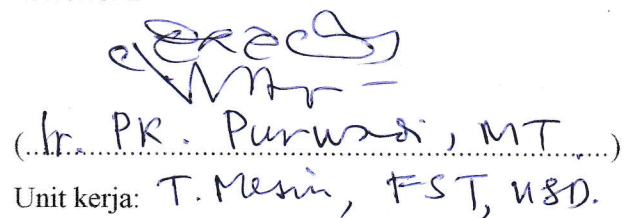 (Ir. PK. Purwadi, MT)
Unit kerja: T. Mesin, FST, USD.